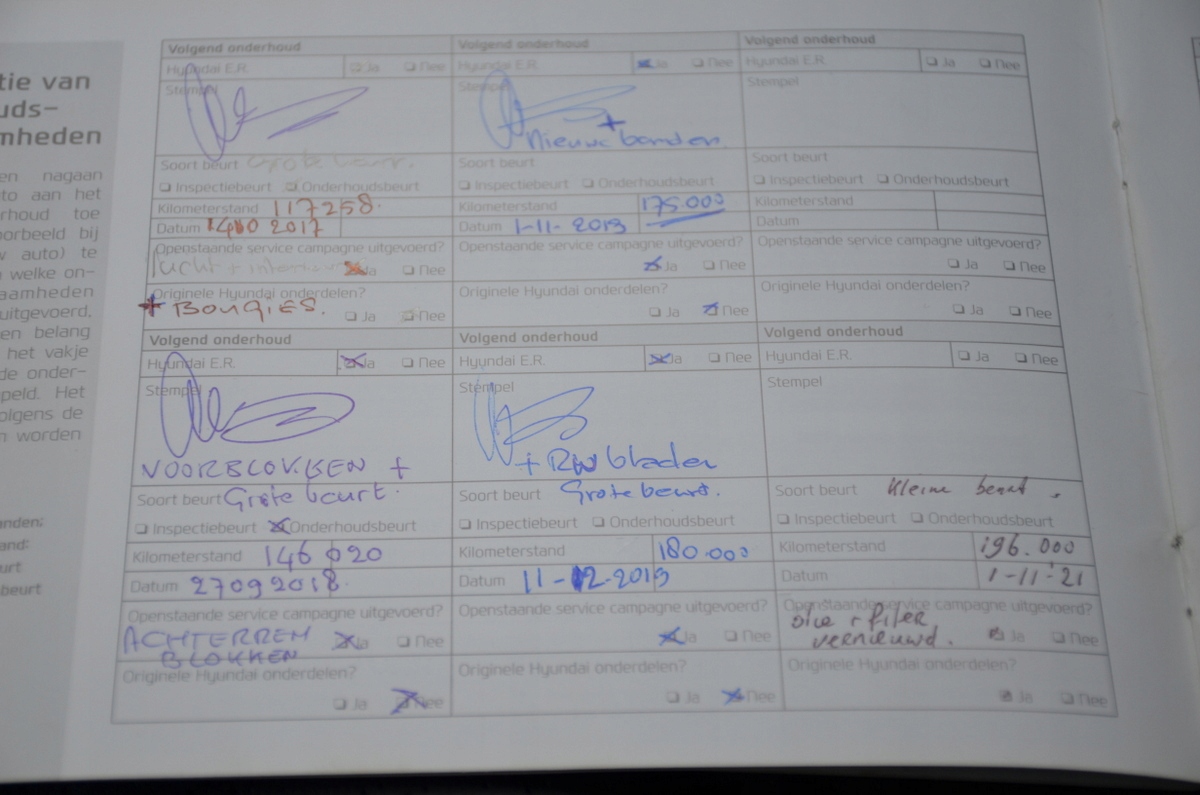 tie van
uds-
mheden
en nagaan
to aan het
rhoud toe
orbeeld bij
w auto) te
welke on-
aamheden
uitgevoerd,
en belang
het vakje
de onder-
peld. Het
olgens de
n worden
anden;
and:
urt
beurt
Volgend onderhoud
Hyundai E.R. Ja Nee
Stempel
Soort beurt Grote beurt.
Inspectiebeurt Onderhoudsbeurt
Kilometerstand 117258.
Datum 2017
Openstaande service campagne uitgevoerd?
lucht + Ja Nee
Originele Hyundai onderdelen?
+ BOUGIES. Ja Nee
Volgend onderhoud
Hyundai E.R. Ja Nee
Stempel
+
Nieuwe banden.
Soort beurt
Inspectiebeurt Onderhoudsbeurt
Kilometerstand 175.000
Datum 1-11-2019
Openstaande service campagne uitgevoerd?
Ja Nee
Originele Hyundai onderdelen?
Ja Nee
Volgend onderhoud
Hyundai E.R. Ja Nee
Stempel
Soort beurt
Inspectiebeurt Onderhoudsbeurt
Kilometerstand
Datum
Openstaande service campagne uitgevoerd?
Ja Nee
Originele Hyundai onderdelen?
Ja Nee
Volgend onderhoud
Hyundai E.R. Ja Nee
Stempel
VOORBLOKKEN +
Soort beurt Grote beurt.
Inspectiebeurt Onderhoudsbeurt
Kilometerstand 146 020
Datum 27092018.
Openstaande service campagne uitgevoerd?
ACHTERREM Ja Nee
BLOKKEN
Originele Hyundai onderdelen?
Ja Nee
Volgend onderhoud
Hyundai E.R. Ja Nee
Stempel
+ RW bladen
Soort beurt Grote beurt.
Inspectiebeurt Onderhoudsbeurt
Kilometerstand 180.000
Datum 11-12-2019
Openstaande service campagne uitgevoerd?
Ja Nee
Originele Hyundai onderdelen?
Ja Nee
Volgend onderhoud
Hyundai E.R. Ja Nee
Stempel
Soort beurt Kleine beurt.
Inspectiebeurt Onderhoudsbeurt
Kilometerstand 196.000
Datum 1-11-'21
Openstaande service campagne uitgevoerd?
olie + filter
vernieuwd. Ja Nee
Originele Hyundai onderdelen?
Ja Nee